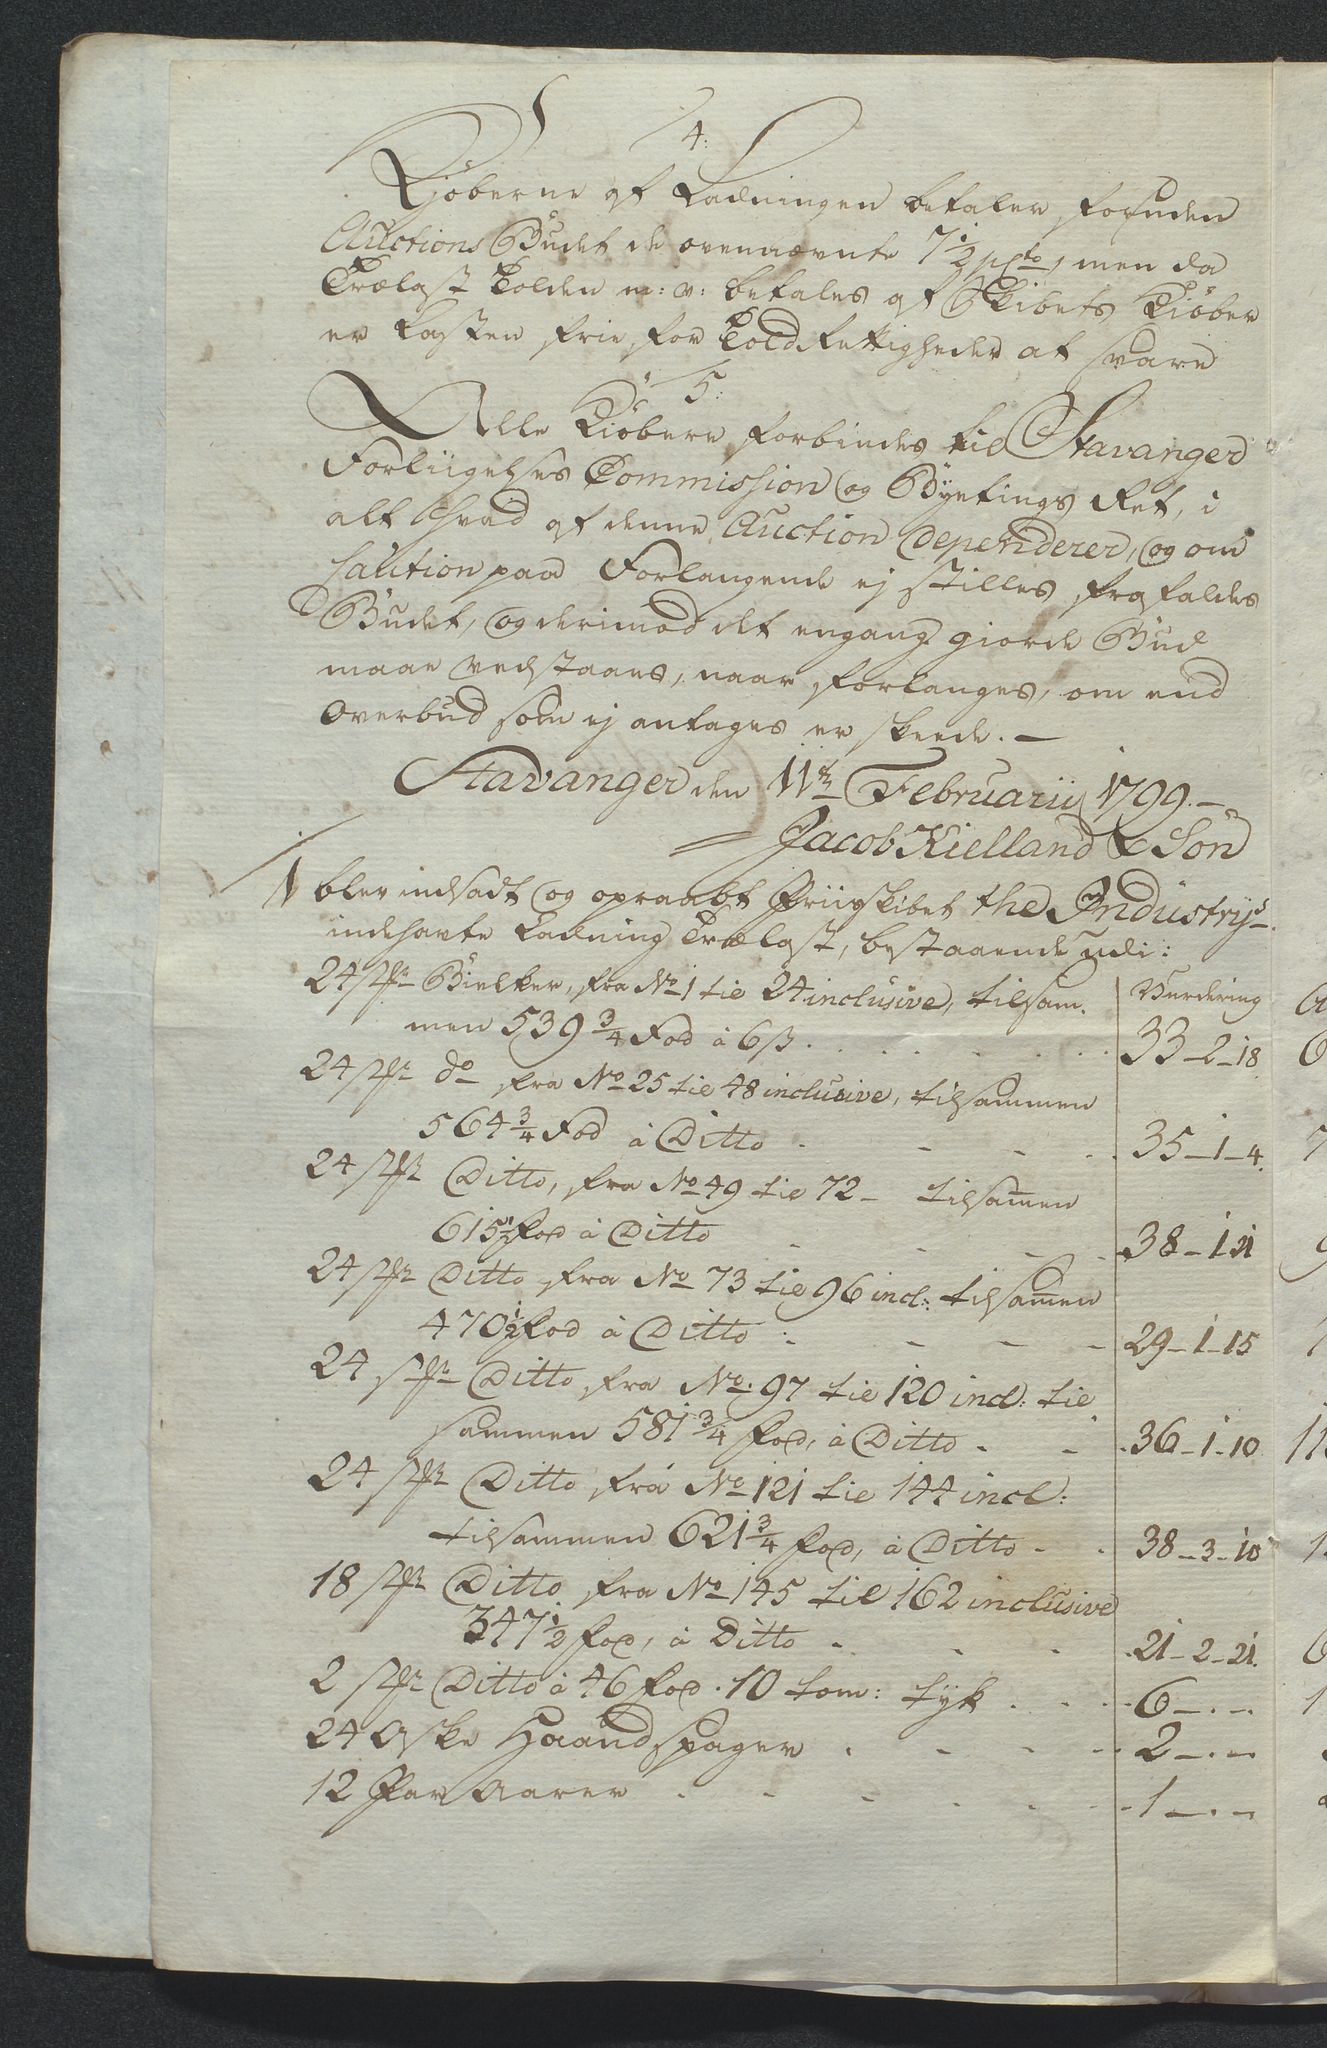 4:
Kjøberne af Ladningen betaler foruden
Auctions Budet de ovennævnte 7½ pCto, men da
Trælast Tolden m: v: betales af Skibets Kiøber
er Lasten frie for Told Rettigheder at svare
5:
Alle Kiøbere forbindes til Stavanger
Forliigelses Commission og Byetings Ret, i
alt hvad af denne Auction dependerer, og om
Caution paa Forlangende ej stilles, frafaldes
Budet, og derimod det engang giorde Bud
maae vedstaaes, naar forlanges, om end
Overbud som ej antages er skeede. —
Stavanger den 11te Februarii 1799. —
Jacob Kielland & Søn
1 blev indsadt og opraabt Priiseskibet the Industrys
indehavte Ladning Trælast, bestaaende udi:
24 stkr Bielker, fra No 1 til 24 inclusive, tilsam- Vurdering
men 539¾ Fod à 6 ß . . . . 33–2–18
24 stkr do fra No 25 til 48 inclusive, tilsammen
564¾ Fod à Ditto . - - . 35–1–4.
24 stkr Ditto, fra No 49 til 72 – tilsamen
615½ Fod à Ditto - - - . 38–1–21
24 stkr Ditto fra No 73 til 96 incl: tilsamen
470½ Fod à Ditto : - - - 29–1–15
24 stkr Ditto fra No. 97 til 120 incl: til
sammen 581¾ Fod, à Ditto - - . 36–1–10
24 stkr Ditto fra No 121 til 144 incl:
tilsammen 621¾ Fod, à Ditto - . 38–3–10
18 stkr Ditto fra No 145 til 162 inclusive
347½ Fod, à Ditto - - - . 21–2–21.
2 stkr Ditto à 46 Fod . 10 tom: tyk . . . 6 – . –
24 Aske Haandspager . - - . 2 – . –
12 Par Aarer . - - - . 1 – . –